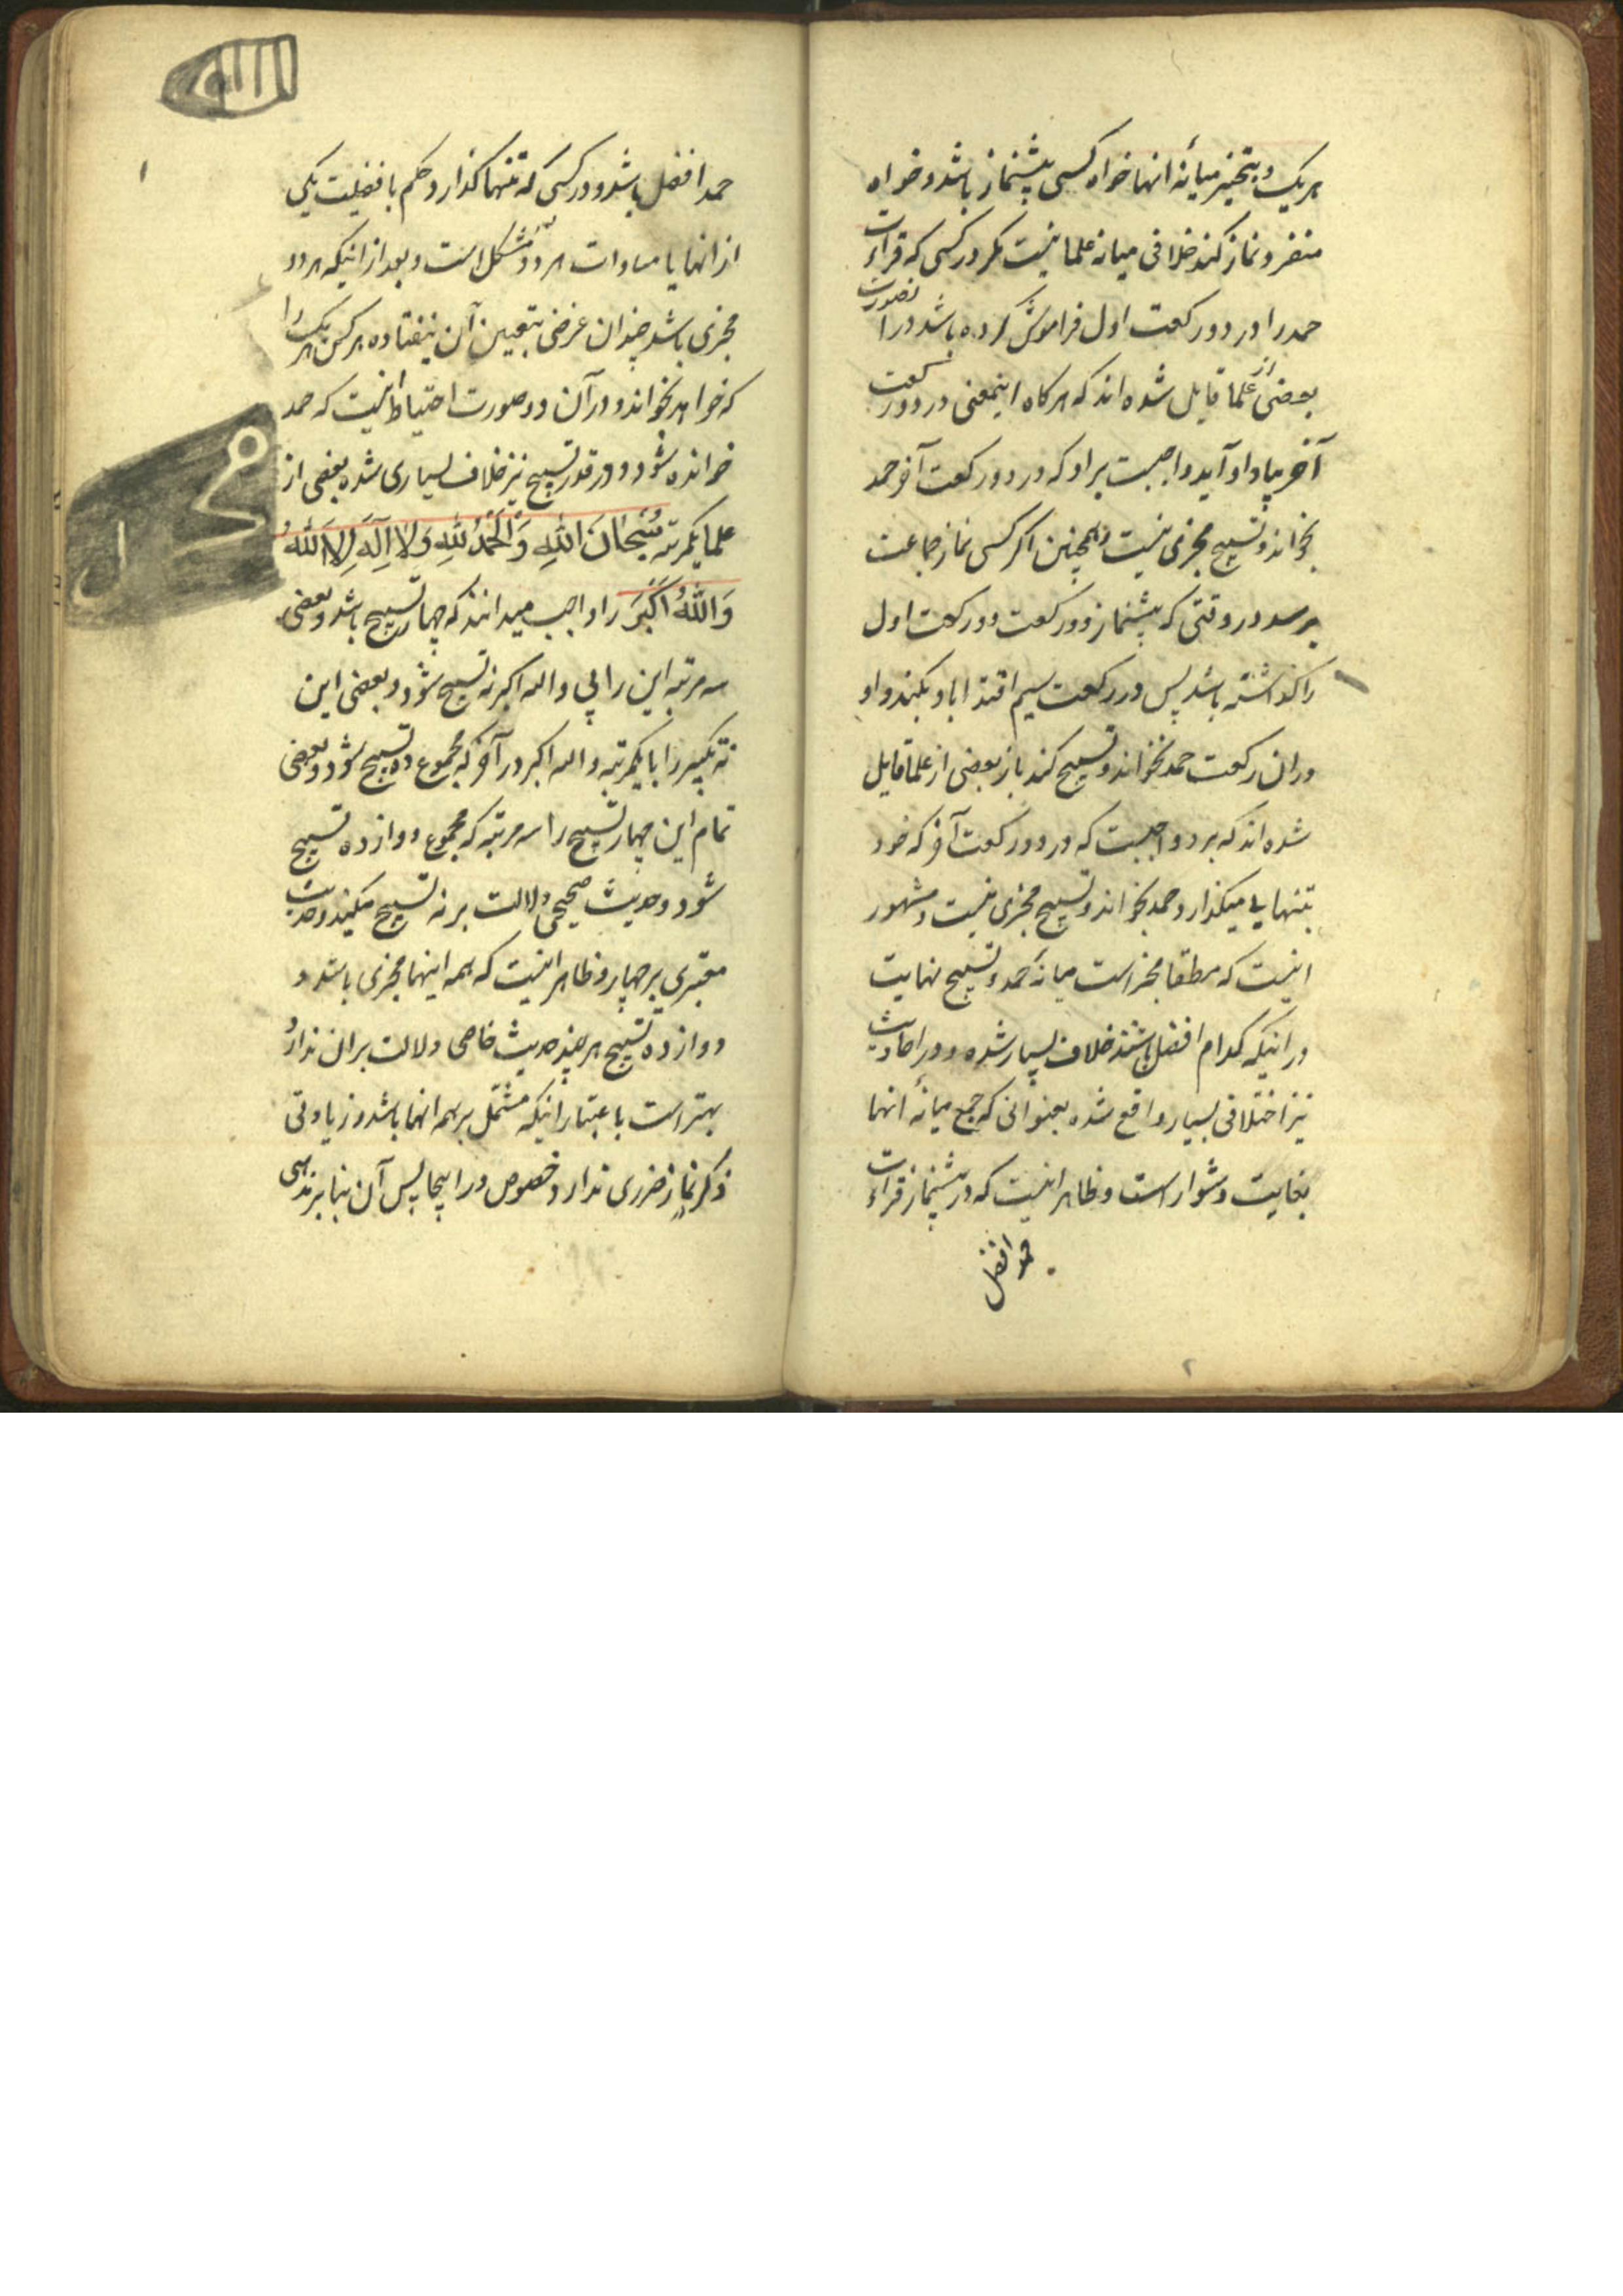 هریک و بتخییر میانه انها خواه کسی پیشنماز باشد و خواه
منفرد نماز کند خلافی میانه علما نیست مکر در کسی که قراءت
حمد را در دو رکعت اول فراموش کرده باشد در انصورت
بعضی از علما قایل شده اند که هرکاه اینمعنی در دو رکعت
آخر بیاد او آید واجبست بر او که در دو رکعت آخر حمد
بخواند و تسبیح مجزی نیست و همچنین اکر کسی نماز جماعت
برسد در وقتی که پیشنماز دو رکعت دو رکعت اول
را کذاشته باشد پس در رکعت سیم اقتدا باو بکند و او
در ان رکعت حمد نخواند و تسبیح کند باز بعضی از علما قایل
شده اند که برو واجبست که در دو رکعت آخر که خود
بتنهایی میکذارد حمد بخواند و تسبیح مجزی نیست و مشهور
اینست که مطلقا مخیر است میانه حمد و تسبیح نهایت
در اینکه کدام افضل باشند خلاف بسیار شده و در احادیث
نیز اختلافی بسیار واقع شده بعنوانی که جمع میانه انها
بغایت دشوار است و ظاهر اینست که در پیشنماز قراءت
حمد افضل
حمد افضل باشد و در کسی که تنها کذارد حکم بافضلیت یکی
از انها یا مساوات هر دو مشکل است و بعد از اینکه هر دو
مجزی باشد چندان غرضی بتعیین آن نیفتاده هر کس هر یک را
که خواهد بخواند و در آن دو صورت احتیاط اینست که حمد
خوانده شود و در قدر تسبیح نیز خلاف بسیاری شده بعضی از
علما یکمرتبه سُبْحَانَ اللّهِ وَالْحَمْدُ لِلّهِ وَلَا اِلَهَ اِلَّا اللّهُ
وَاللّهُ اَکْبَرُ را واجب میدانند که چهار تسبیح باشد و بعضی
سه مرتبه این را بی والله اکبر نه تسبیح شود و بعضی این
نه تکبیر را با یکمرتبه والله اکبر در آخر که مجموع ده تسبیح شود و بعضی
تمام این چهار تسبیح را سه مرتبه که مجموع دوازده تسبیح
شود و حدیث صحیحی دلالت بر نه تسبیح میکند و حدیث
معتبری بر چهار و ظاهر اینست که همه اینها مجزی باشد و
دوازده تسبیح هر چند حدیث خاصی دلالت بر ان ندارد
بهتر است باعتبار اینکه مشتمل بر همه انها باشد و زیادتی
ذکر نماز ضرری ندارد خصوص در اینجا پس آن بنا بر ندبی